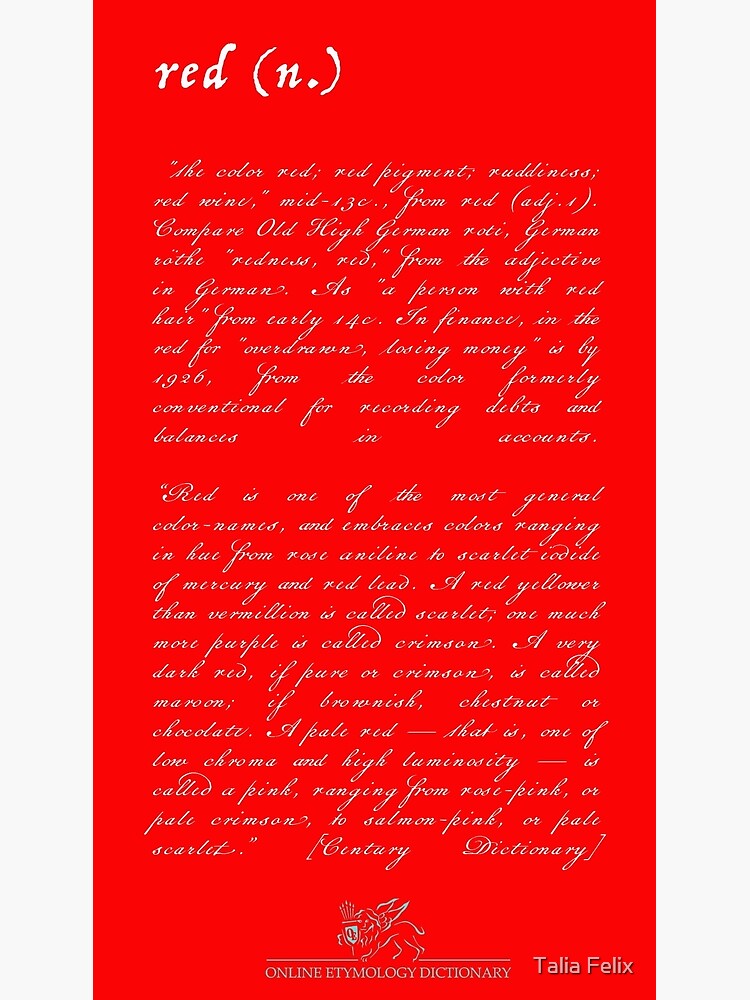 red (n.)
"the color red; red pigment; ruddiness;
red wine," mid-13c., from red (adj.1).
Compare Old High German roti, German
röthe "redness, red," from the adjective
in German. As "a person with red
hair" from early 14c. In finance, in the
red for "overdrawn, losing money" is by
1926, from the color formerly
conventional for recording debts and
balances in accounts.
“Red is one of the most general
color-names, and embraces colors ranging
in hue from rose aniline to scarlet iodide
of mercury and red lead. A red yellower
than vermillion is called scarlet; one much
more purple is called crimson. A very
dark red, if pure or crimson, is called
maroon; if brownish, chestnut or
chocolate. A pale red — that is, one of
low chroma and high luminosity — is
called a pink, ranging from rose-pink, or
pale crimson, to salmon-pink, or pale
scarlet.” [Century Dictionary]
ONLINE ETYMOLOGY DICTIONARY
Talia Felix